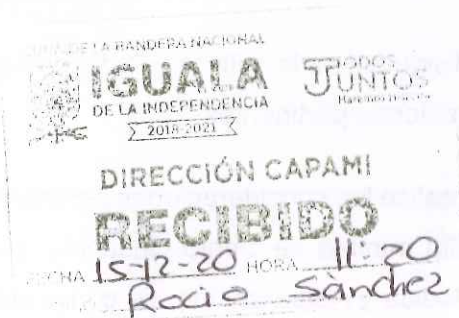 LA BANDERA NACIONAL
IGUALA
DE LA INDEPENDENCIA
2018-2021
TODOS
JUNTOS
DIRECCIÓN CAPAMI
RECIBIDO
FECHA 15-12-20 HORA 11:20
Rocio Sànchez